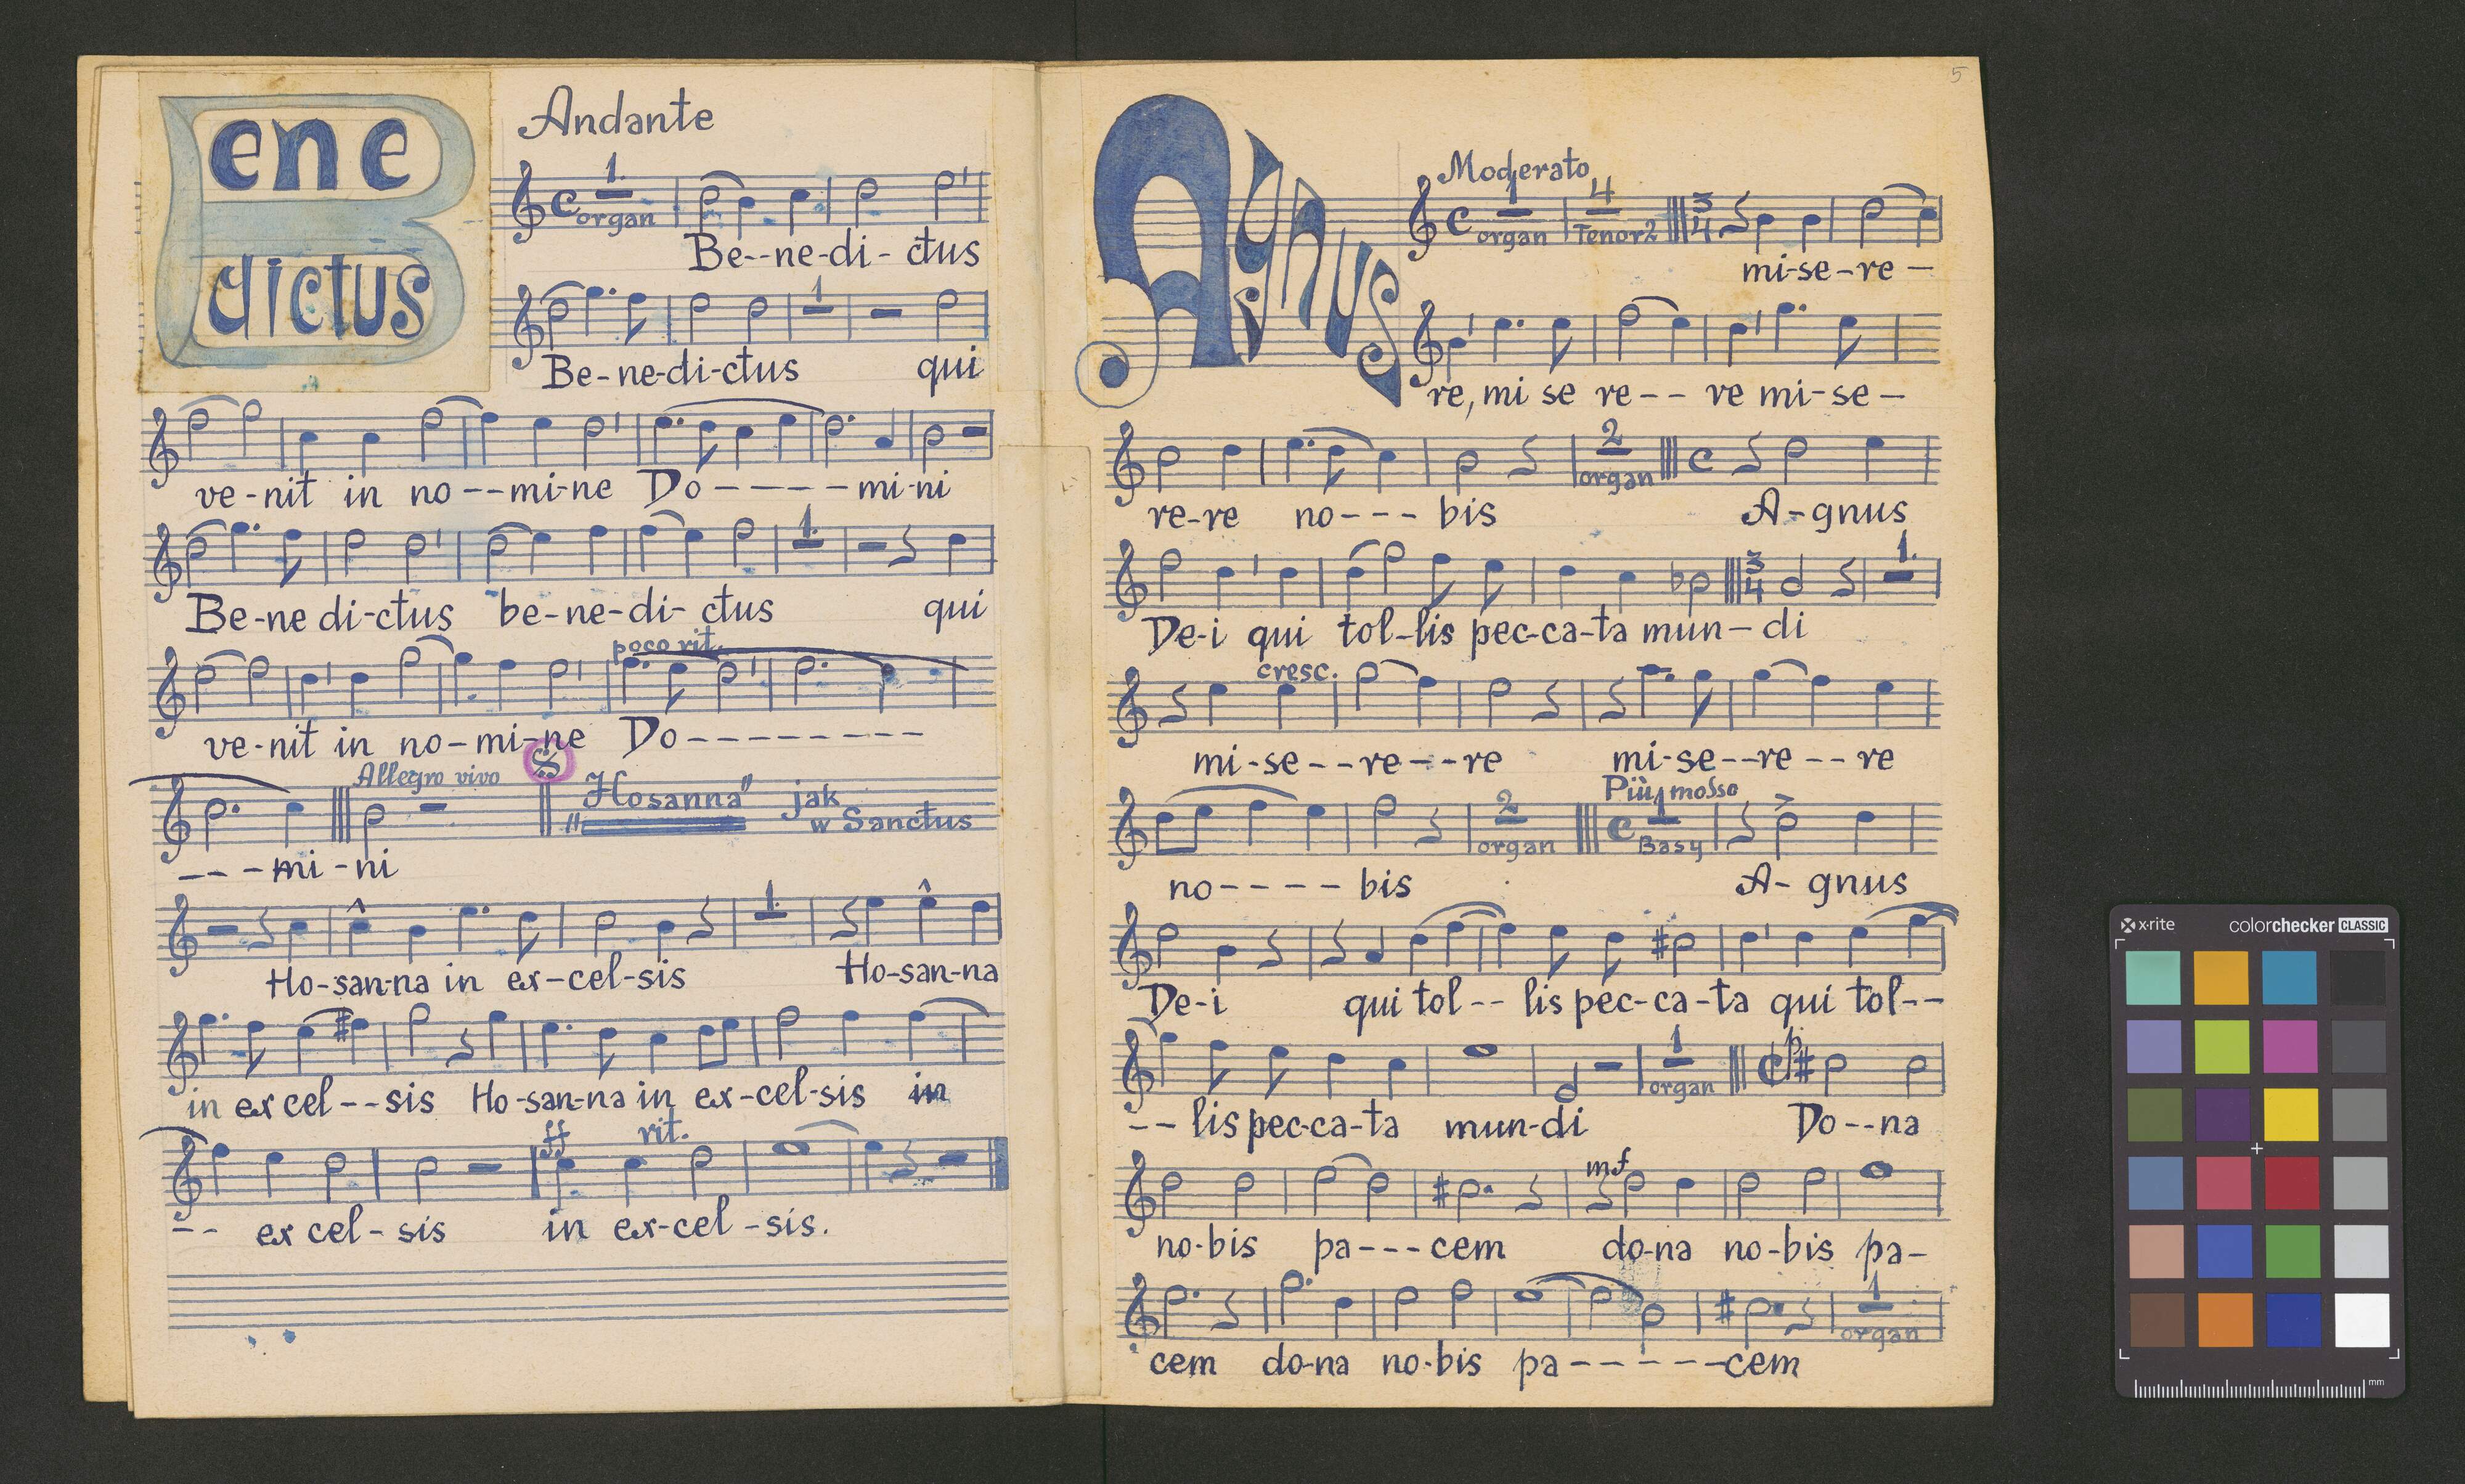 Benedictus
Andante
1.
organ
Be--ne-di-ctus
1
Be-ne-di-ctus qui
ve-nit in no--mi-ne Do-----mi-ni
1.
Be-ne di-ctus be-ne-di-ctus qui
poco rit.
ve-nit in no-mi-ne Do---------
Allegro vivo
„Hosanna" jak
w Sanctus
---mi-ni
1.
Ho-san-na in ex-cel-sis Ho-san-na
in ex cel--sis Ho-san-na in ex-cel-sis in
ff rit.
-- ex cel-sis in ex-cel-sis.
5
Agnus
Moderato
1 4
organ Tenor 2 3/4
mi-se-re-
re, mi se re-- re mi-se-
2
organ
re-re no--- bis A-gnus
3/4 1.
De-i qui tol-lis pec-ca-ta mun-di
cresc.
mi-se--re--re mi-se--re--re
Più mosso
2 1
organ Basy
no---- bis A-gnus
De-i qui tol-- lis pec-ca-ta qui tol--
1 p
organ
-- lis pec-ca-ta mun-di Do--na
mf
no-bis pa---cem do-na no-bis pa-
1
organ
cem do-na no-bis pa------cem
x-rite colorchecker CLASSIC
mm